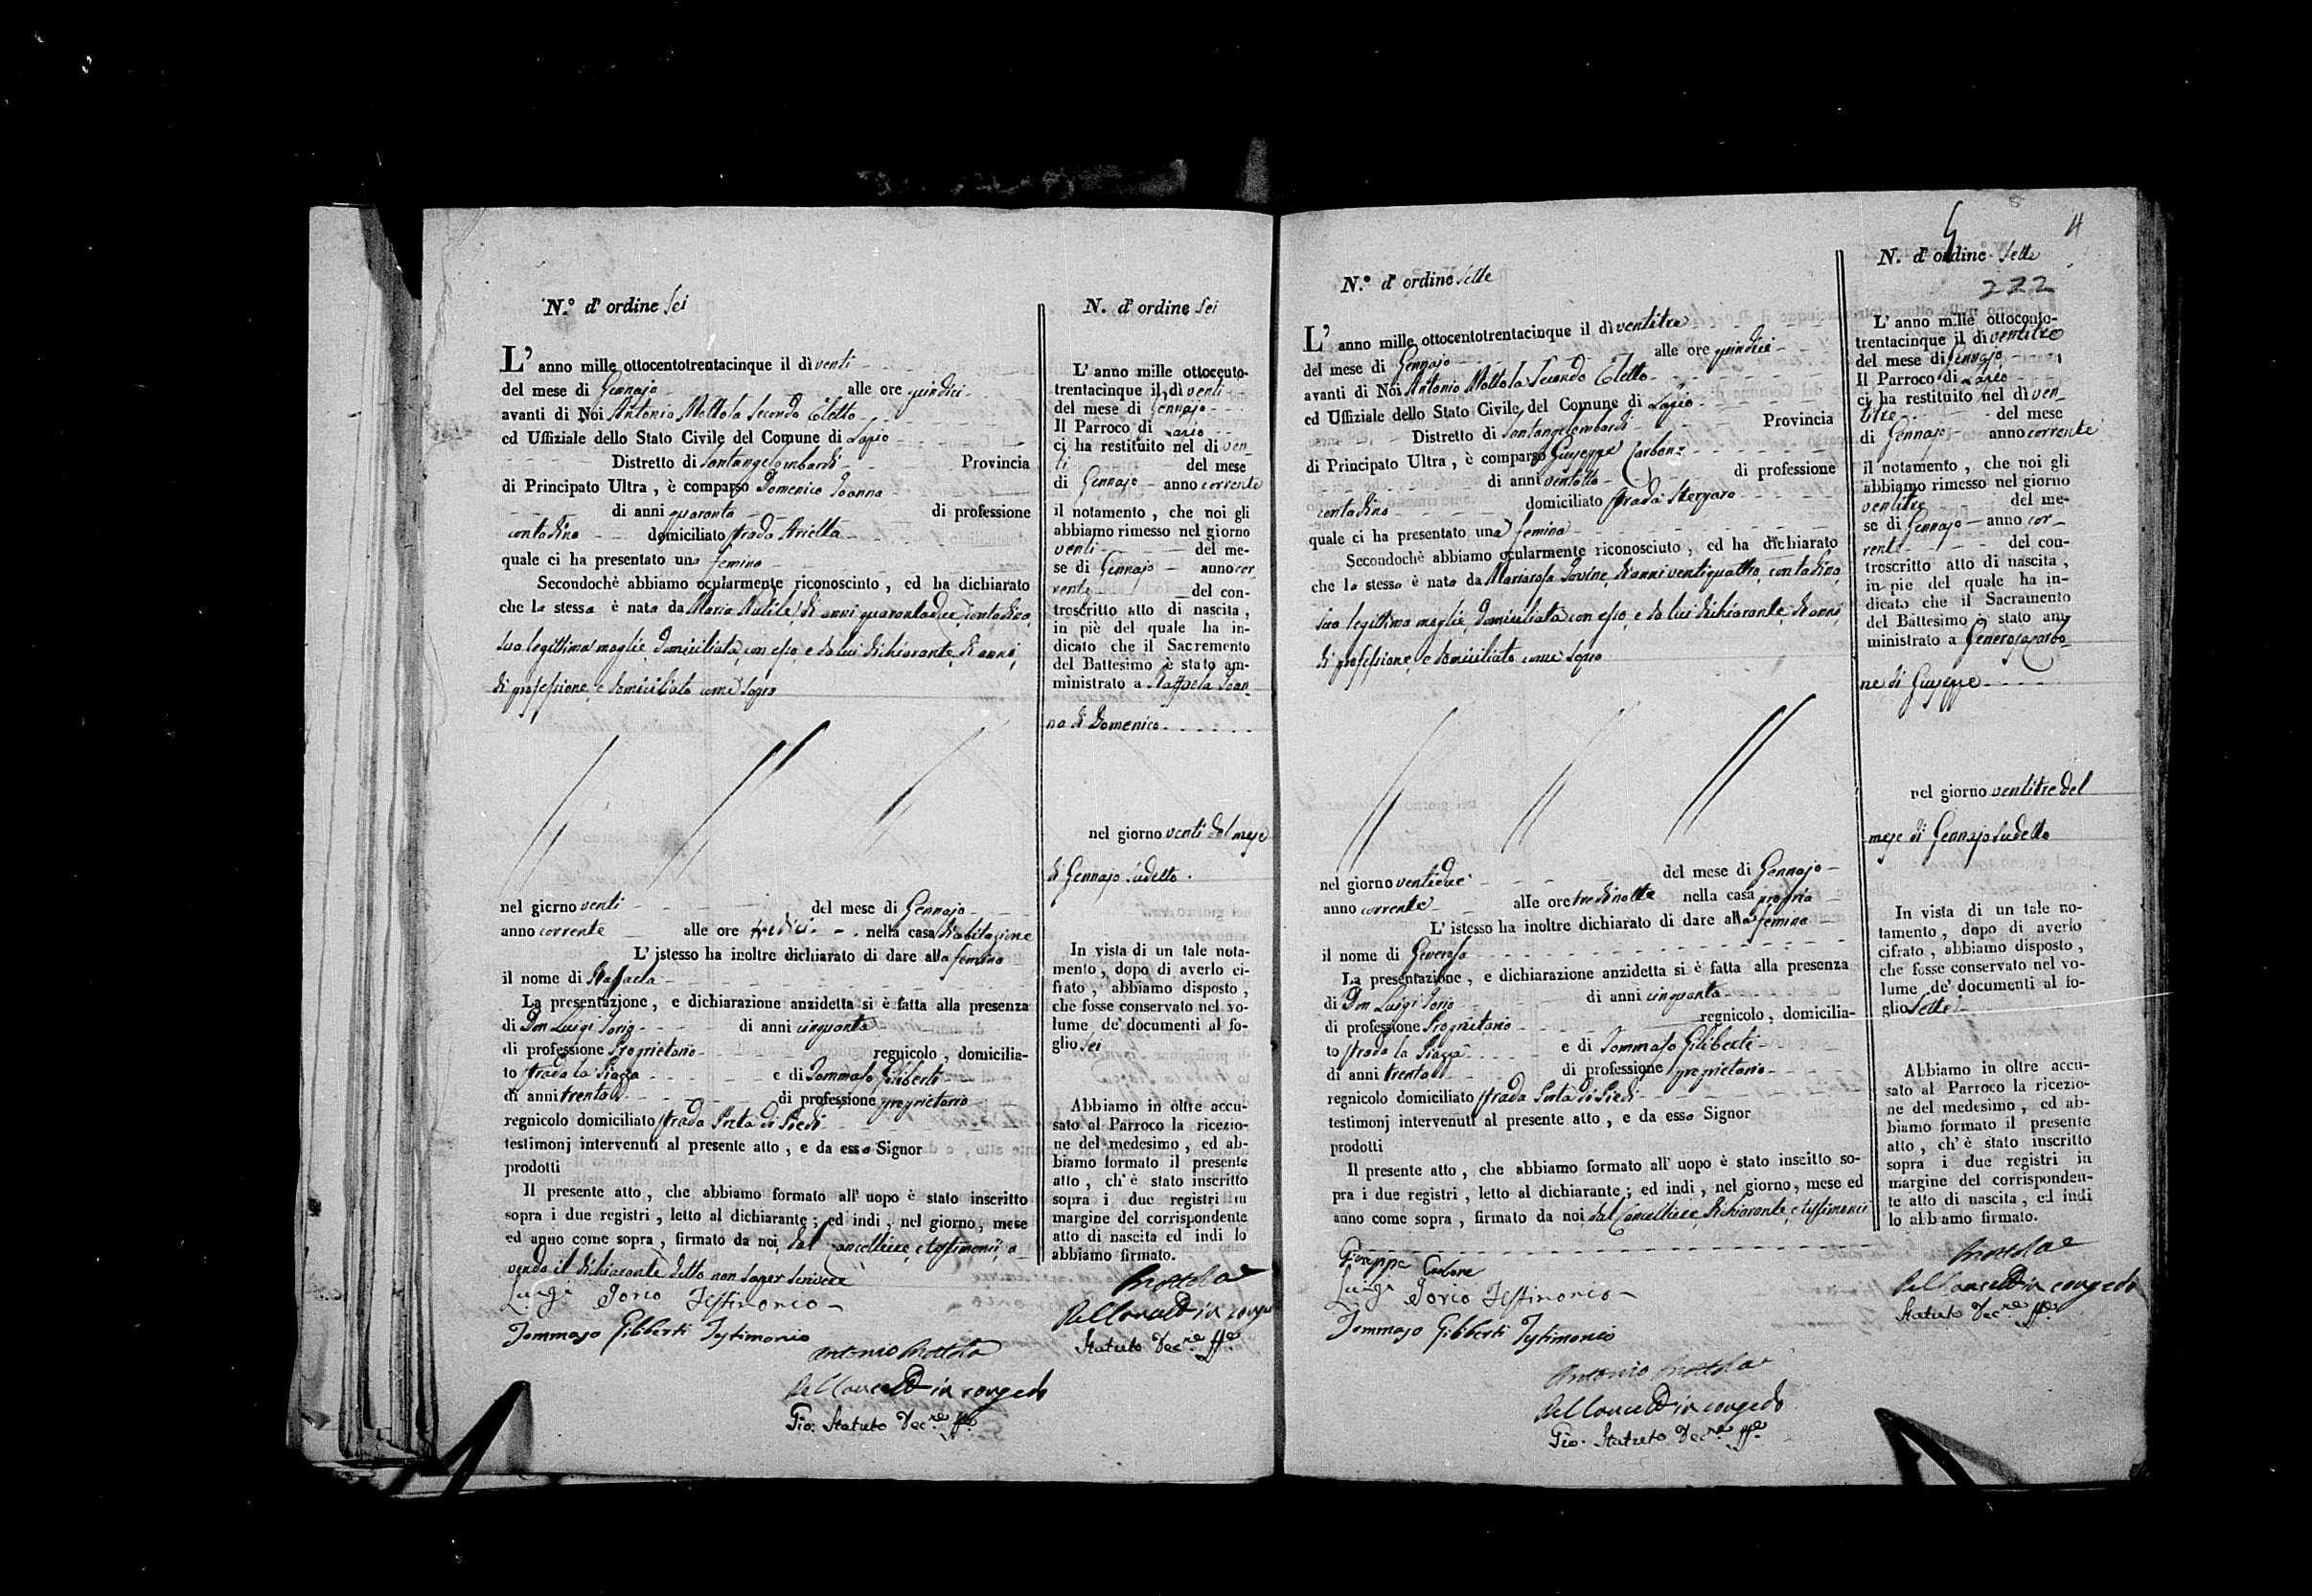 N.º d' ordine Sei
L' anno mille ottocentotrentacinque il dì venti
del mese di Gennajo alle ore quindici
avanti di Noi Antonio Mottola Secondo Eletto
ed Uffiziale dello Stato Civile del Comune di Lapio
Distretto di Santangelombardi Provincia
di Principato Ultra , è comparso Domenico Joanna
di anni quaranta di professione
contadino domiciliato strada Arietta
quale ci ha presentato una femina
Secondochè abbiamo ocularmente riconosciuto , ed ha dichiarato
che la stessa è nata da Maria di anni quarantadue, contadina,
sua legittima moglie, domiciliata con esso, e da lui dichiarante, di anni,
di professione, e domiciliato come sopra
nel giorno venti del mese di Gennajo
anno corrente alle ore tredici nella casa d'abitazione
L' istesso ha inoltre dichiarato di dare alla femina
il nome di Raffaela
La presentazione , e dichiarazione anzidetta si è fatta alla presenza
di Don Luigi Jorio di anni cinquanta
di professione Proprietario regnicolo , domicilia-
to strada la Piazza e di Tommaso Giliberti
di anni trenta di professione proprietario
regnicolo domiciliato strada Porta di Piedi
testimonj intervenuti al presente atto , e da esso Signor
prodotti
Il presente atto , che abbiamo formato all' uopo è stato inscritto
sopra i due registri , letto al dichiarante ; ed indi , nel giorno , mese
ed anno come sopra , firmato da noi, dal Cancelliere, e testimonii, a-
vendo il dichiarante detto non saper scrivere
Luigi Jorio Testimonio
Tommaso Giliberti Testimonio
Antonio Mottola
Pel Cancell in congedo
Gio: Statuto Dec.ne ff.e
N. d' ordine Sei
L' anno mille ottocento-
trentacinque il dì venti
del mese di Gennajo
Il Parroco di Lapio
ci ha restituito nel dì ven-
ti del mese
di Gennajo anno corrente
il notamento , che noi gli
abbiamo rimesso nel giorno
venti del me-
se di Gennajo anno cor-
rente del con-
troscritto atto di nascita ,
in piè del quale ha in-
dicato che il Sacremento
del Battesimo è stato am-
ministrato a Raffaela Joan-
na di Domenico
nel giorno venti del mese
di Gennajo sudetto .
In vista di un tale nota-
mento , dopo di averlo ci-
frato , abbiamo disposto ,
che fosse conservato nel vo-
lume de' documenti al fo-
glio Sei
Abbiamo in oltre accu-
sato al Parroco la ricezio-
ne del medesimo , ed ab-
biamo formato il presente
atto , ch' è stato inscritto
sopra i due registri in
margine del corrispondente
atto di nascita ed indi lo
abbiamo firmato.
Mottola
Pel Cancell in conge
Statuto Dec.ne ff.e
4
N.º d' ordine Sette
L' anno mille ottocentotrentacinque il dì ventitre
del mese di Gennajo alle ore quindici
avanti di Noi Antonio Mottola Secondo Eletto
ed Uffiziale dello Stato Civile del Comune di Lapio
Distretto di Santangelombardi Provincia
di Principato Ultra , è comparso Giuseppe Carbone
di anni ventotto di professione
contadino domiciliato strada
quale ci ha presentato una femina
Secondochè abbiamo ocularmente riconosciuto , ed ha dichiarato
che la stessa è nata da Mariarosa Jovine, di anni ventiquattro, contadina,
sua legittima moglie, domiciliata con esso, e da lui dichiarante, di anni,
di professione, e domiciliato come sopra
nel giorno ventidue del mese di Gennajo
anno corrente alle ore tre di notte nella casa propria
L' istesso ha inoltre dichiarato di dare alla femina
il nome di Generosa
La presentazione , e dichiarazione anzidetta si è fatta alla presenza
di Don Luigi Jorio di anni cinquanta
di professione Proprietario regnicolo , domicilia-
to strada la Piazza e di Tommaso Giliberti
di anni trenta di professione proprietario
regnicolo domiciliato strada Porta di Piedi
testimonj intervenuti al presente atto , e da esso Signor
prodotti
Il presente atto , che abbiamo formato all' uopo è stato inscitto so-
pra i due registri , letto al dichiarante ; ed indi , nel giorno , mese ed
anno come sopra , firmato da noi, dal Cancelliere, dichiarante, e testimonii
Giuseppe Carbone
Luigi Jorio Testimonio
Tommaso Giliberti Testimonio
Antonio Mottola
Pel Cancell in congedo
Gio. Statuto Dec.ne ff.e
N. d' ordine Sette
222
L' anno mille ottocento-
trentacinque il dì ventitre
del mese di Gennajo
Il Parroco di Lapio
ci ha restituito nel dì ven-
titre del mese
di Gennajo anno corrente
il notamento , che noi gli
abbiamo rimesso nel giorno
ventitre del me-
se di Gennajo anno cor-
rente del con-
troscritto atto di nascita ,
in piè del quale ha in-
dicato che il Sacramento
del Battesimo è stato am-
ministrato a Generosa Carbo-
ne di Giuseppe
nel giorno ventitre del
mese di Gennajo sudetto
In vista di un tale no-
tamento , dopo di averlo
cifrato , abbiamo disposto ,
che fosse conservato nel vo-
lume de' documenti al fo-
glio Sette
Abbiamo in oltre accu-
sato al Parroco la ricezio-
ne del medesimo , ed ab-
biamo formato il presente
atto , ch' è stato inscritto
sopra i due registri in
margine del corrisponden-
te atto di nascita , ed indi
lo abbiamo firmato.
Mottola
Pel Cancell in congedo
Statuto Dec.ne ff.e